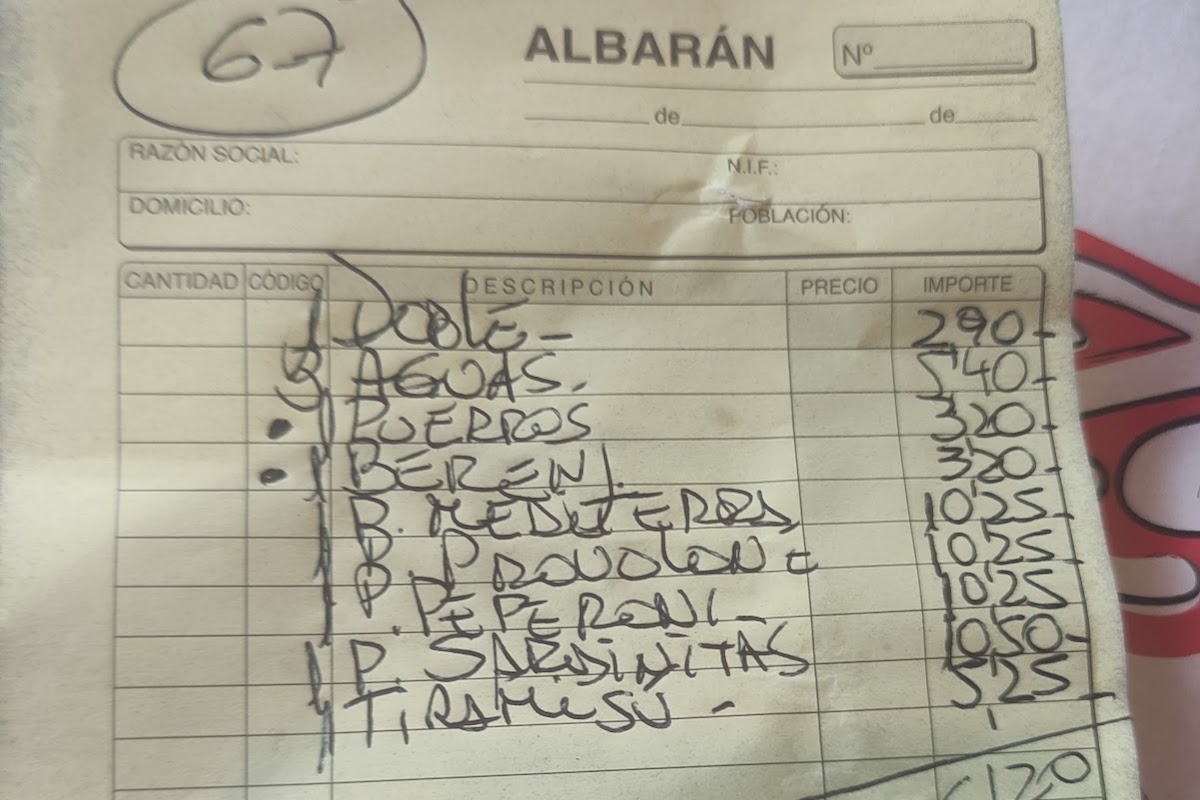 67
ALBARÁN Nº
de de
RAZÓN SOCIAL: N.I.F.:
DOMICILIO: POBLACIÓN:
CANTIDAD CÓDIGO DESCRIPCIÓN PRECIO IMPORTE
1 DOBLE - 2'90-
3 AGUAS. 5'40-
• 1 PUERROS 3'20-
• 1 BERENJ. 3'20-
1 P. MEDITERRA, 10'25-
1 P. PROVOLONE 10'25
1 P. PEPERONI - 10'25
1 P. SARDINITAS 10'50-
1 TIRAMISÚ - 5'25